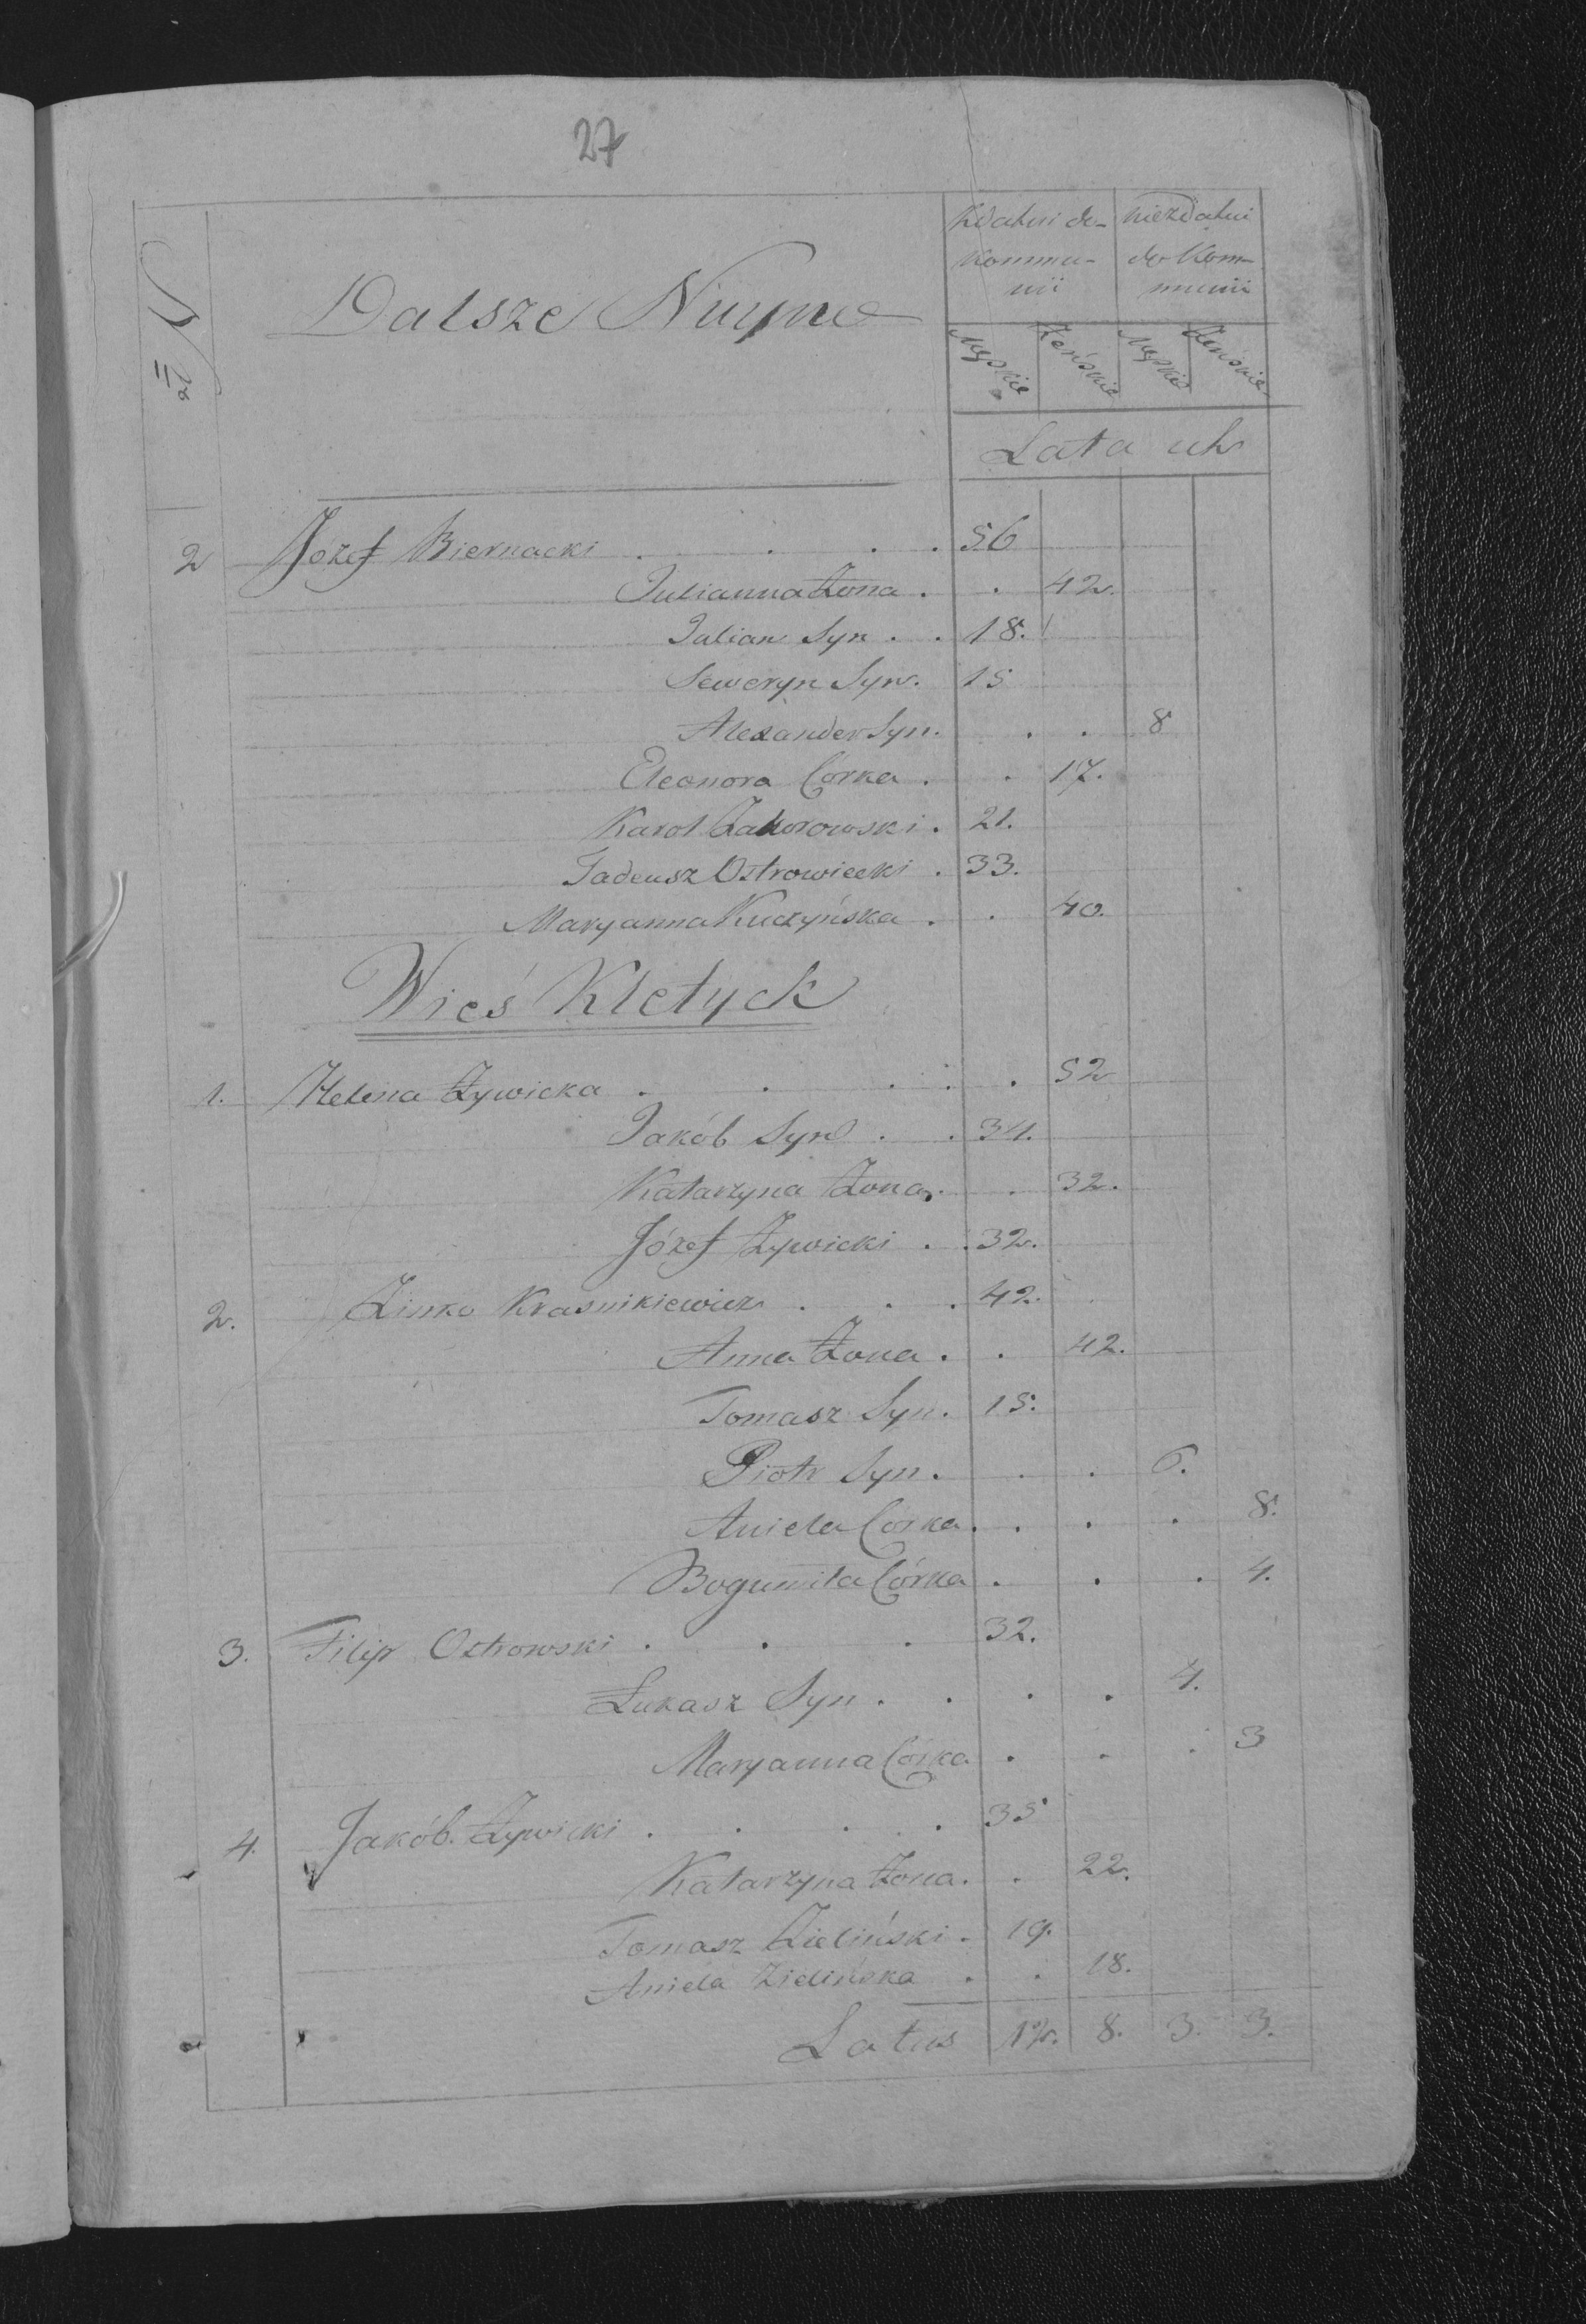 27
Zdatni do
Kommu-
nii
niezdatni
do Kom-
munii
Dalsze
Męskie
Żeńskie
Męskie
Żeńskie
Lata ich
2 Józef Biernacki . . . . 56
Julianna Żona . . 42.
Julian Syn . . 18.
Seweryn Syn. 15
Alexander Syn. . . 8
Eleonora Córka . . 17.
Karol . 21.
Tadeusz Ostrowiecki . 33.
Maryanna Kuczyńska . . 40.
Wieś Kletyck
1. Helena Żywicka . . . . . 52
Jakób Syn . . 34.
Katarzyna Żona . . 32.
Józef Żywicki . . 32.
2. Zinko Krasnikiewicz . . . 42.
Anna Żona . . 42.
Tomasz Syn. 15.
Piotr Syn . . . 6.
Aniela Córka . . . . 8.
Bogumiła Córka . . . 4.
3. Filip Ostrowski . . . 32.
Łukasz Syn . . . . 4.
Maryanna Córka . . . 3
4. Jakób Żywicki . . . . . 35
Katarzyna Żona . . 22.
Tomasz Zieliński . 19.
Aniela Zielińska . . 18.
Latus 12. 8. 3. 3.